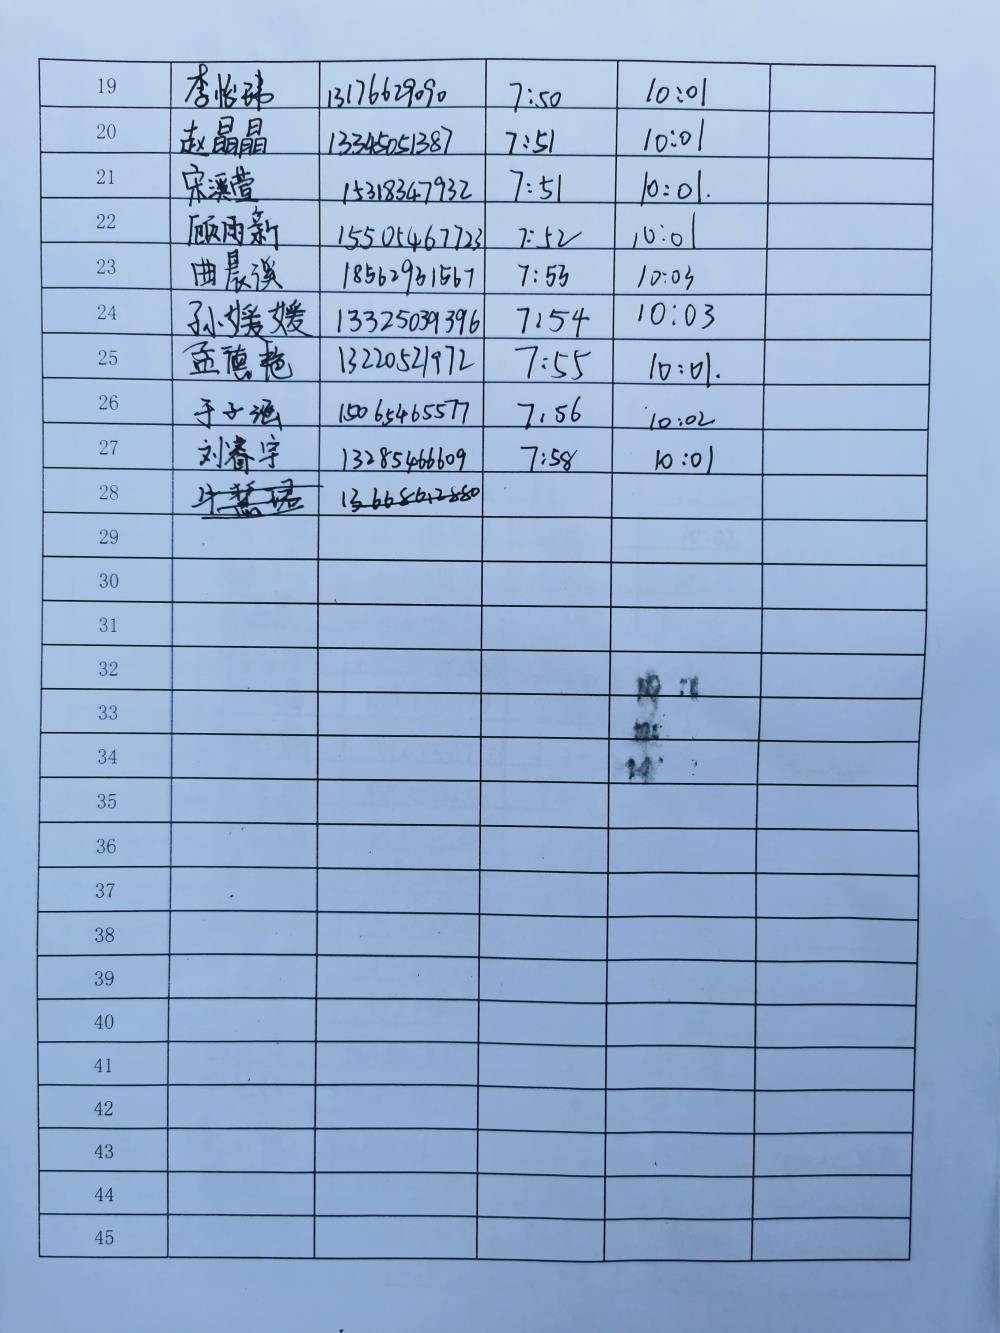 19 李怡玮 13176629090 7:50 10:01
20 赵晶晶 13345051387 7:51 10:01
21 宋溪萱 15318347932 7:51 10:01.
22 顾雨新 15505467723 7:52 10:01
23 曲晨溪 18562931567 7:53 10:03
24 孙媛媛 13325039396 7:54 10:03
25 孟德艳 13220521972 7:55 10:01.
26 于子涵 15065465577 7:56 10:02
27 刘睿宇 13285466609 7:58 10:01
28
29
30
31
32
33
34
35
36
37
38
39
40
41
42
43
44
45